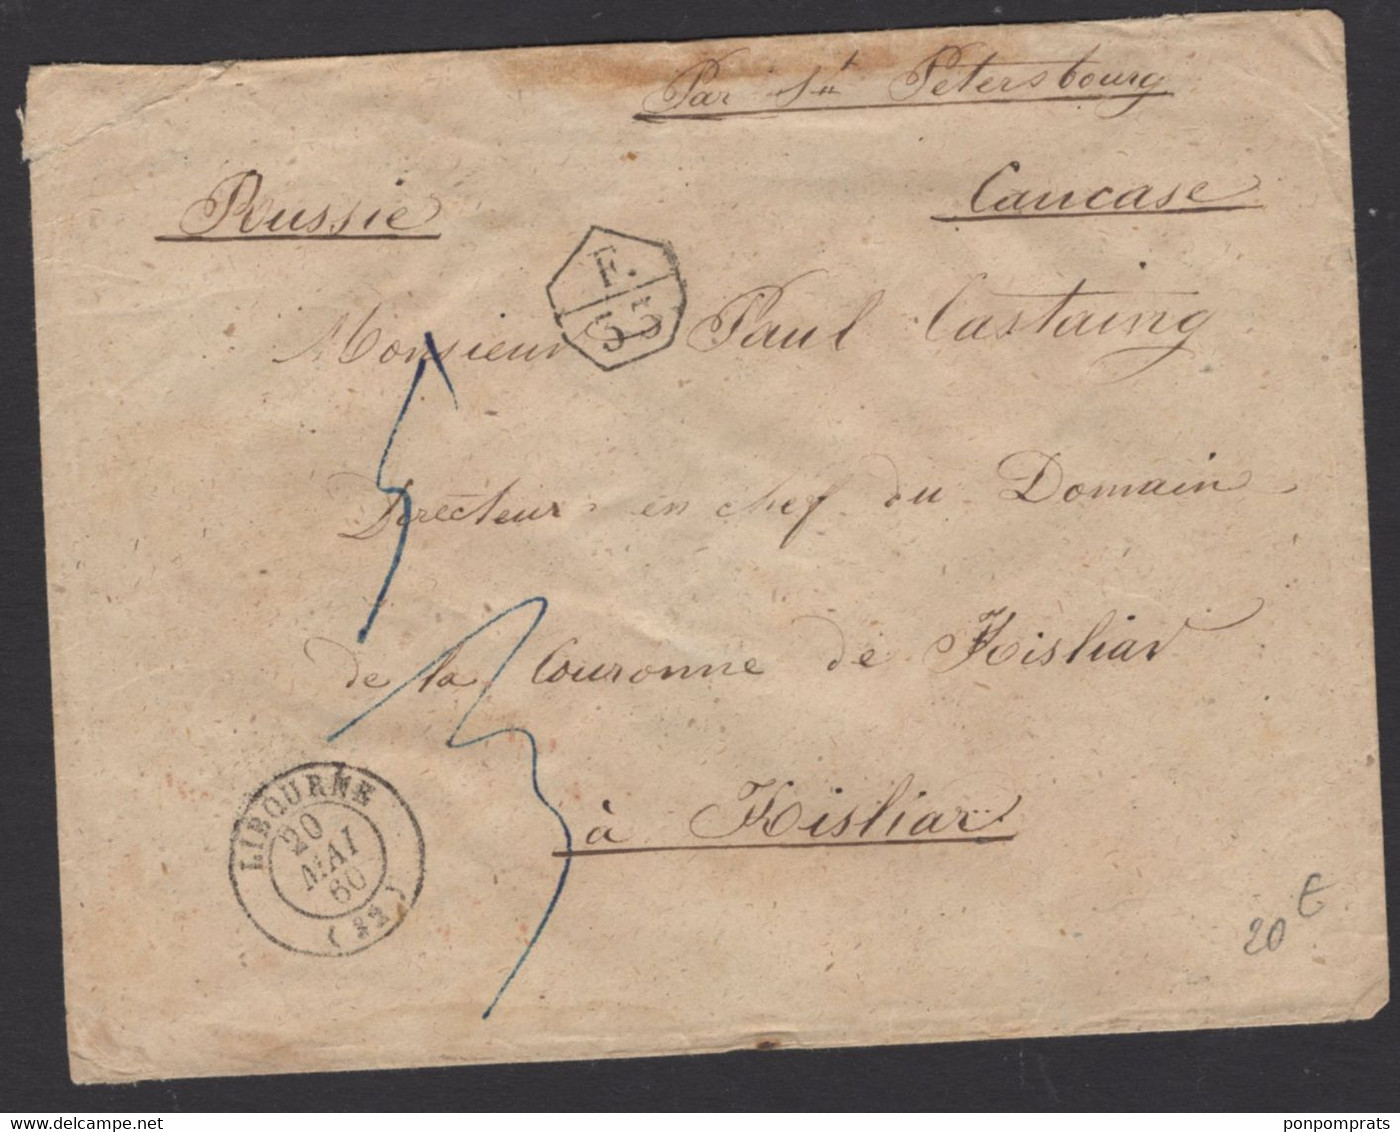 Par St Petersbourg
Russie
Caucase
F.
35
Monsieur Paul Castaing
Directeur en chef du Domain
de la Couronne de Kisliar
à Kisliar
LIBOURNE
20
MAI
60
(32)
20 €
ponpomprats